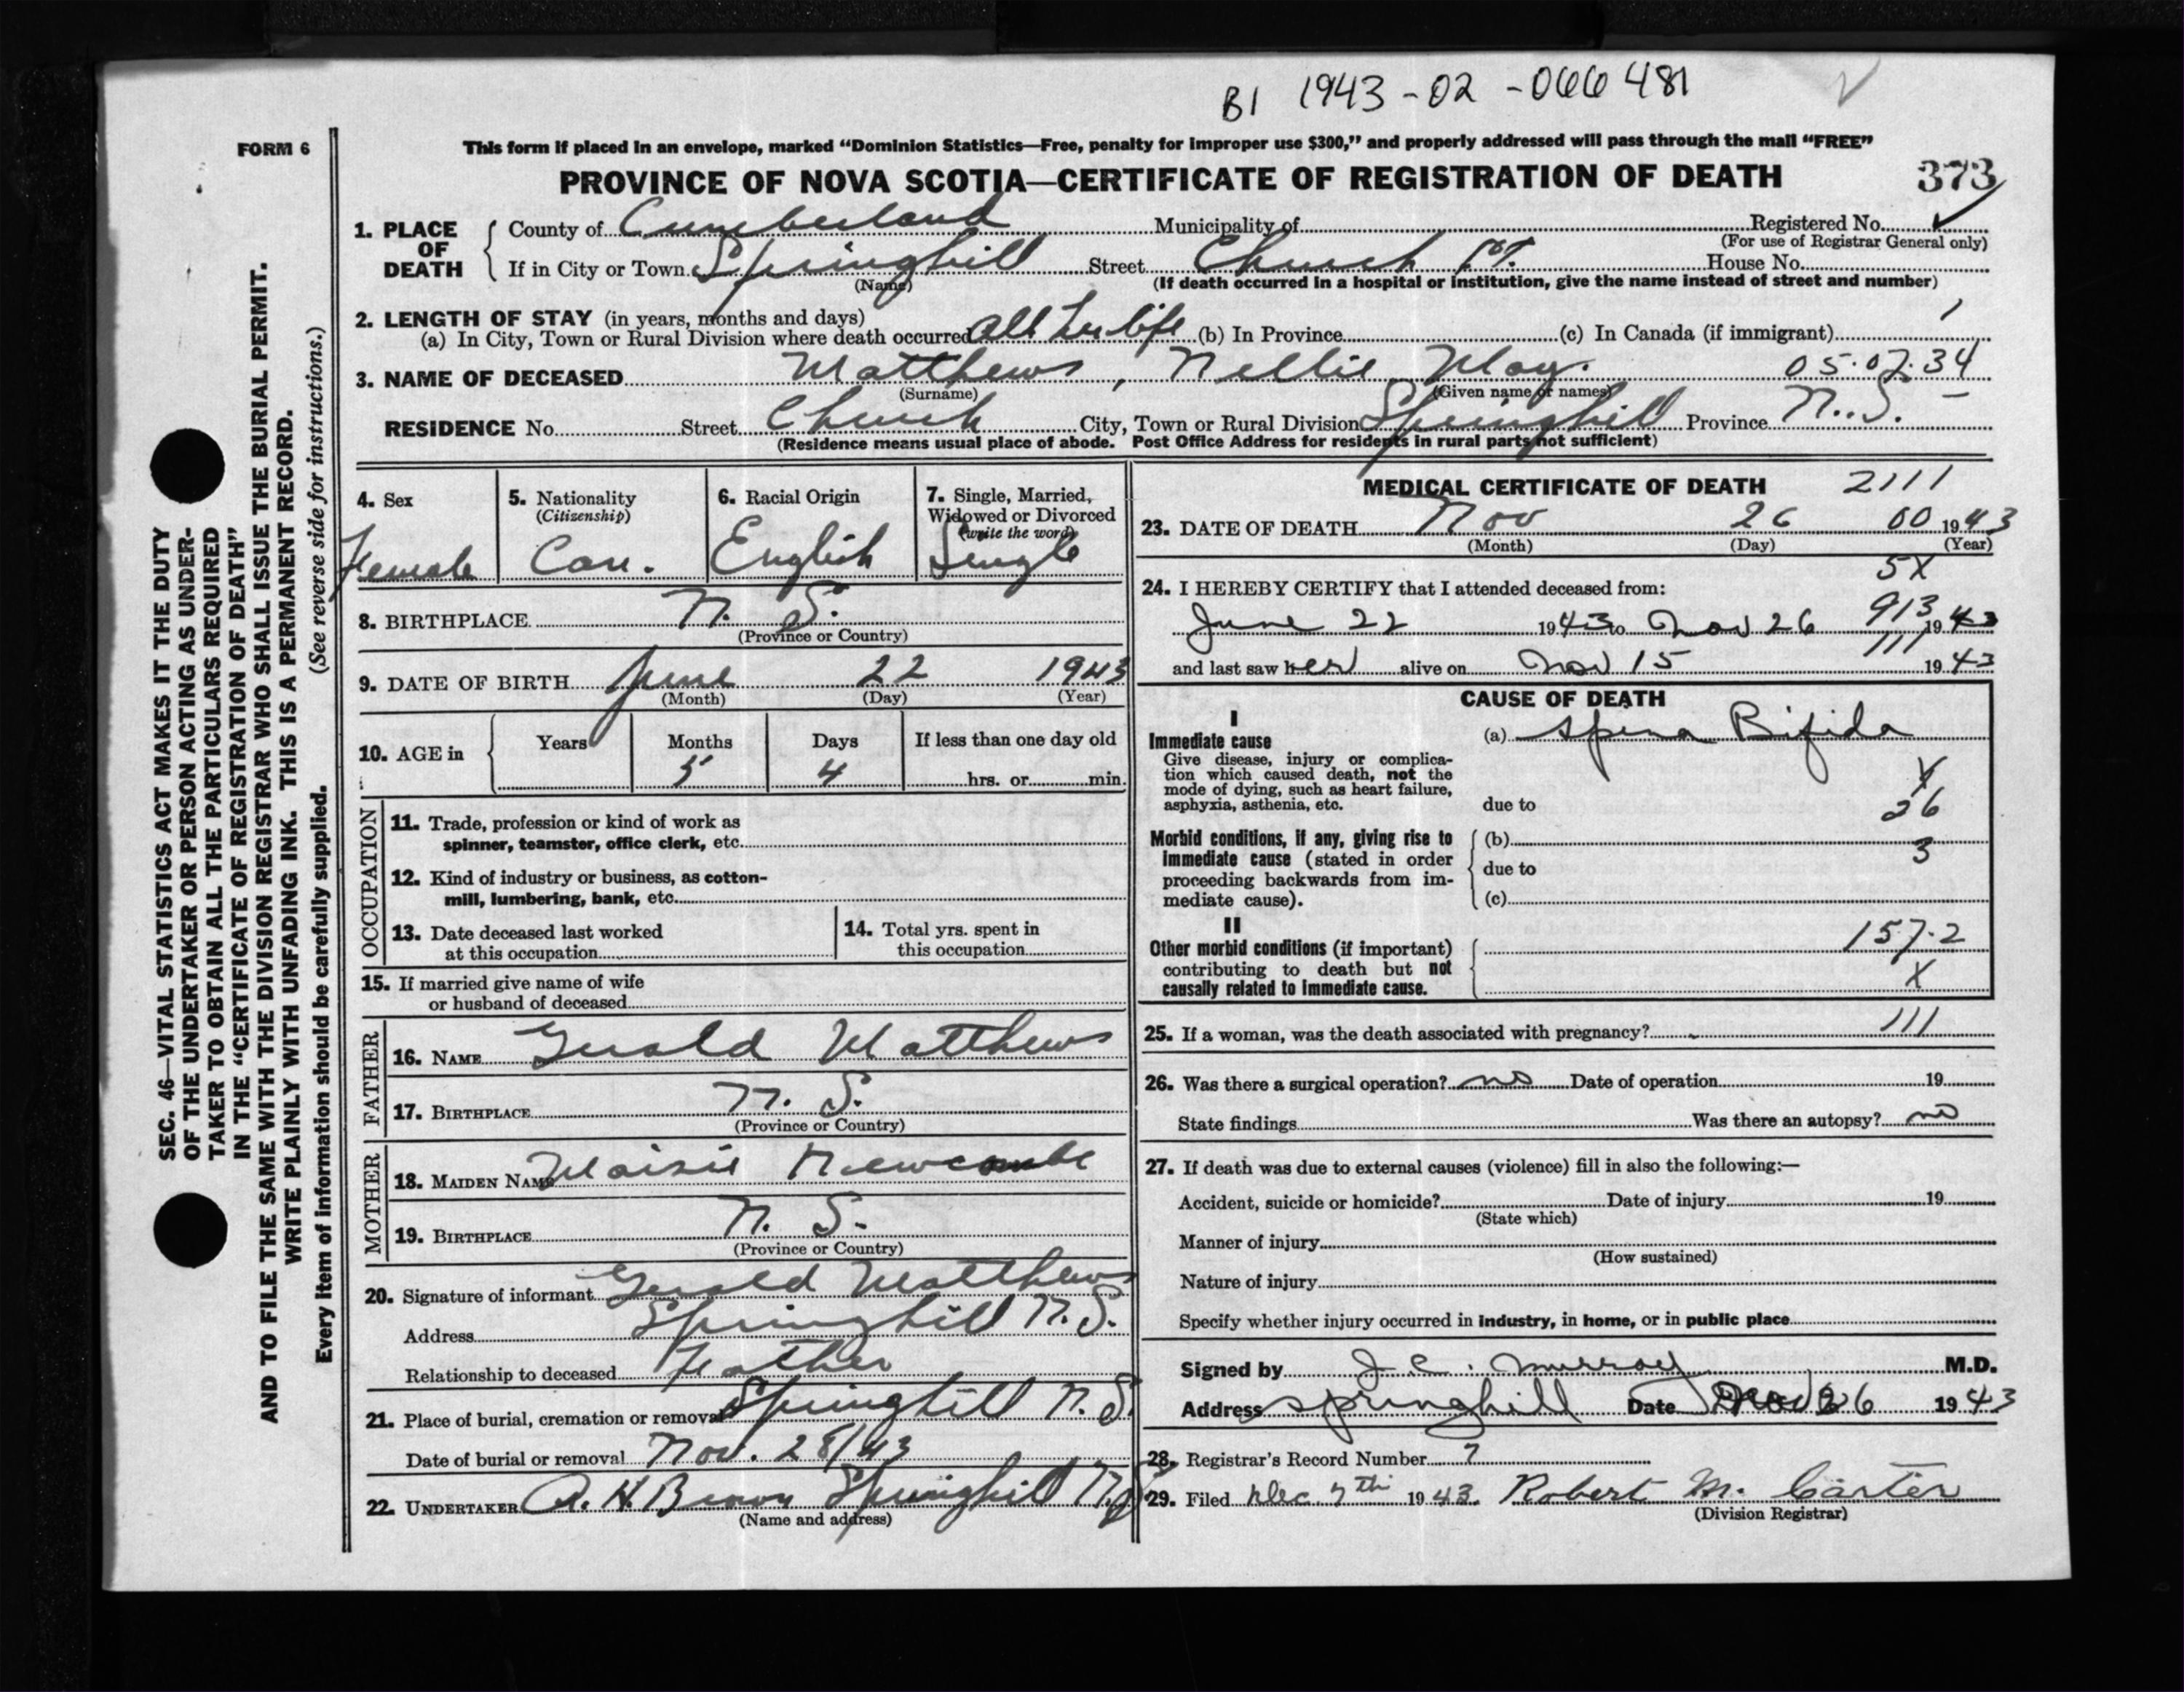 B1 1943-02-066481
FORM 6
This form if placed in an envelope, marked "Dominion Statistics—Free, penalty for improper use $300," and properly addressed will pass through the mail "FREE"
PROVINCE OF NOVA SCOTIA—CERTIFICATE OF REGISTRATION OF DEATH 373
1. PLACE OF DEATH
County of Cumberland Municipality of Registered No.
(For use of Registrar General only)
If in City or Town Springhill Street Church St. House No.
(Name) (If death occurred in a hospital or institution, give the name instead of street and number)
2. LENGTH OF STAY (in years, months and days)
(a) In City, Town or Rural Division where death occurred All her life (b) In Province (c) In Canada (if immigrant)
3. NAME OF DECEASED Matthews, Nellie May. 05.07.34
(Surname) (Given name or names)
RESIDENCE No. Street Church City, Town or Rural Division Springhill Province N.S.
(Residence means usual place of abode. Post Office Address for residents in rural parts not sufficient)
4. Sex Female
5. Nationality (Citizenship) Can.
6. Racial Origin English
7. Single, Married, Widowed or Divorced (write the word) Single
8. BIRTHPLACE N. S.
(Province or Country)
9. DATE OF BIRTH June 22 1943
(Month) (Day) (Year)
10. AGE in Years Months 5 Days 4 If less than one day old
hrs. or min.
OCCUPATION
11. Trade, profession or kind of work as
spinner, teamster, office clerk, etc.
12. Kind of industry or business, as cotton-
mill, lumbering, bank, etc.
13. Date deceased last worked
at this occupation
14. Total yrs. spent in
this occupation
15. If married give name of wife
or husband of deceased
FATHER
16. NAME Gerald Matthews
17. BIRTHPLACE N. S.
(Province or Country)
MOTHER
18. MAIDEN NAME Maisie Newcombe
19. BIRTHPLACE N. S.
(Province or Country)
20. Signature of informant Gerald Matthews
Address Springhill N.S.
Relationship to deceased Father
21. Place of burial, cremation or removal Springhill N.S.
Date of burial or removal Nov. 28/43
22. UNDERTAKER A. H. Brown Springhill N.S.
(Name and address)
MEDICAL CERTIFICATE OF DEATH 2111
23. DATE OF DEATH Nov 26 00 1943
(Month) (Day) (Year)
5X
24. I HEREBY CERTIFY that I attended deceased from:
913
June 22 1943 to Nov 26 1943
111
and last saw her alive on Nov 15 1943
CAUSE OF DEATH
I
Immediate cause
Give disease, injury or complica-
tion which caused death, not the
mode of dying, such as heart failure,
asphyxia, asthenia, etc.
(a) Spina Bifida
due to
26
Morbid conditions, if any, giving rise to
immediate cause (stated in order
proceeding backwards from im-
mediate cause).
(b)
3
due to
(c)
II
Other morbid conditions (if important)
contributing to death but not
causally related to immediate cause.
157.2
X
25. If a woman, was the death associated with pregnancy? 111
26. Was there a surgical operation? no Date of operation 19
State findings Was there an autopsy? no
27. If death was due to external causes (violence) fill in also the following:—
Accident, suicide or homicide? Date of injury 19
(State which)
Manner of injury
(How sustained)
Nature of injury
Specify whether injury occurred in industry, in home, or in public place
Signed by J. C. Murray M.D.
Address Springhill Date Nov 26 1943
28. Registrar's Record Number 7
29. Filed Dec. 7th 1943. Robert M. Carter
(Division Registrar)
SEC. 46—VITAL STATISTICS ACT MAKES IT THE DUTY
OF THE UNDERTAKER OR PERSON ACTING AS UNDER-
TAKER TO OBTAIN ALL THE PARTICULARS REQUIRED
IN THE "CERTIFICATE OF REGISTRATION OF DEATH"
AND TO FILE THE SAME WITH THE DIVISION REGISTRAR WHO SHALL ISSUE THE BURIAL PERMIT.
WRITE PLAINLY WITH UNFADING INK. THIS IS A PERMANENT RECORD.
Every item of information should be carefully supplied. (See reverse side for instructions.)